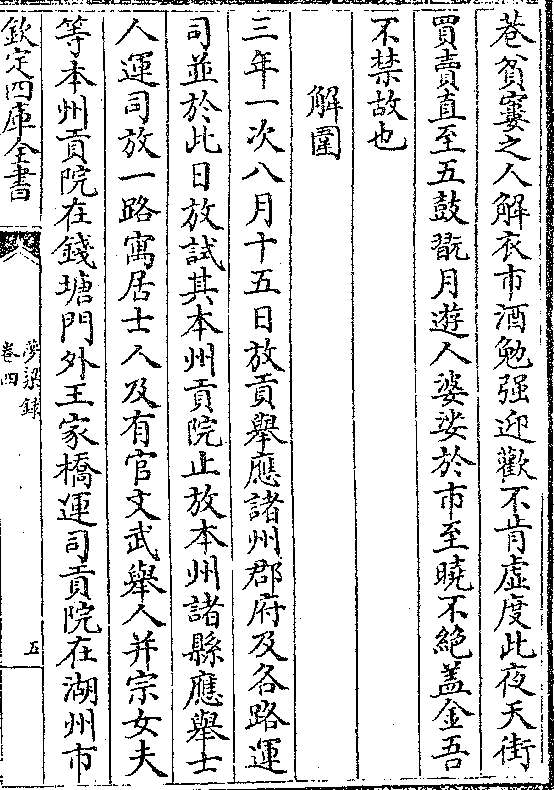 巷貧窶之人解衣市酒勉强迎歡不肯虛度此夜天街
買賣直至五鼓翫月遊人婆娑於市至曉不絕蓋金吾
不禁故也
解圍
三年一次八月十五日放貢舉應諸州郡府及各路運
司並於此日放試其本州貢院止放本州諸縣應舉士
人運司放一路寓居士人及有官文武舉人并宗女夫
等本州貢院在錢塘門外王家橋運司貢院在湖州市
欽定四庫全書
夢粱録
卷四
五